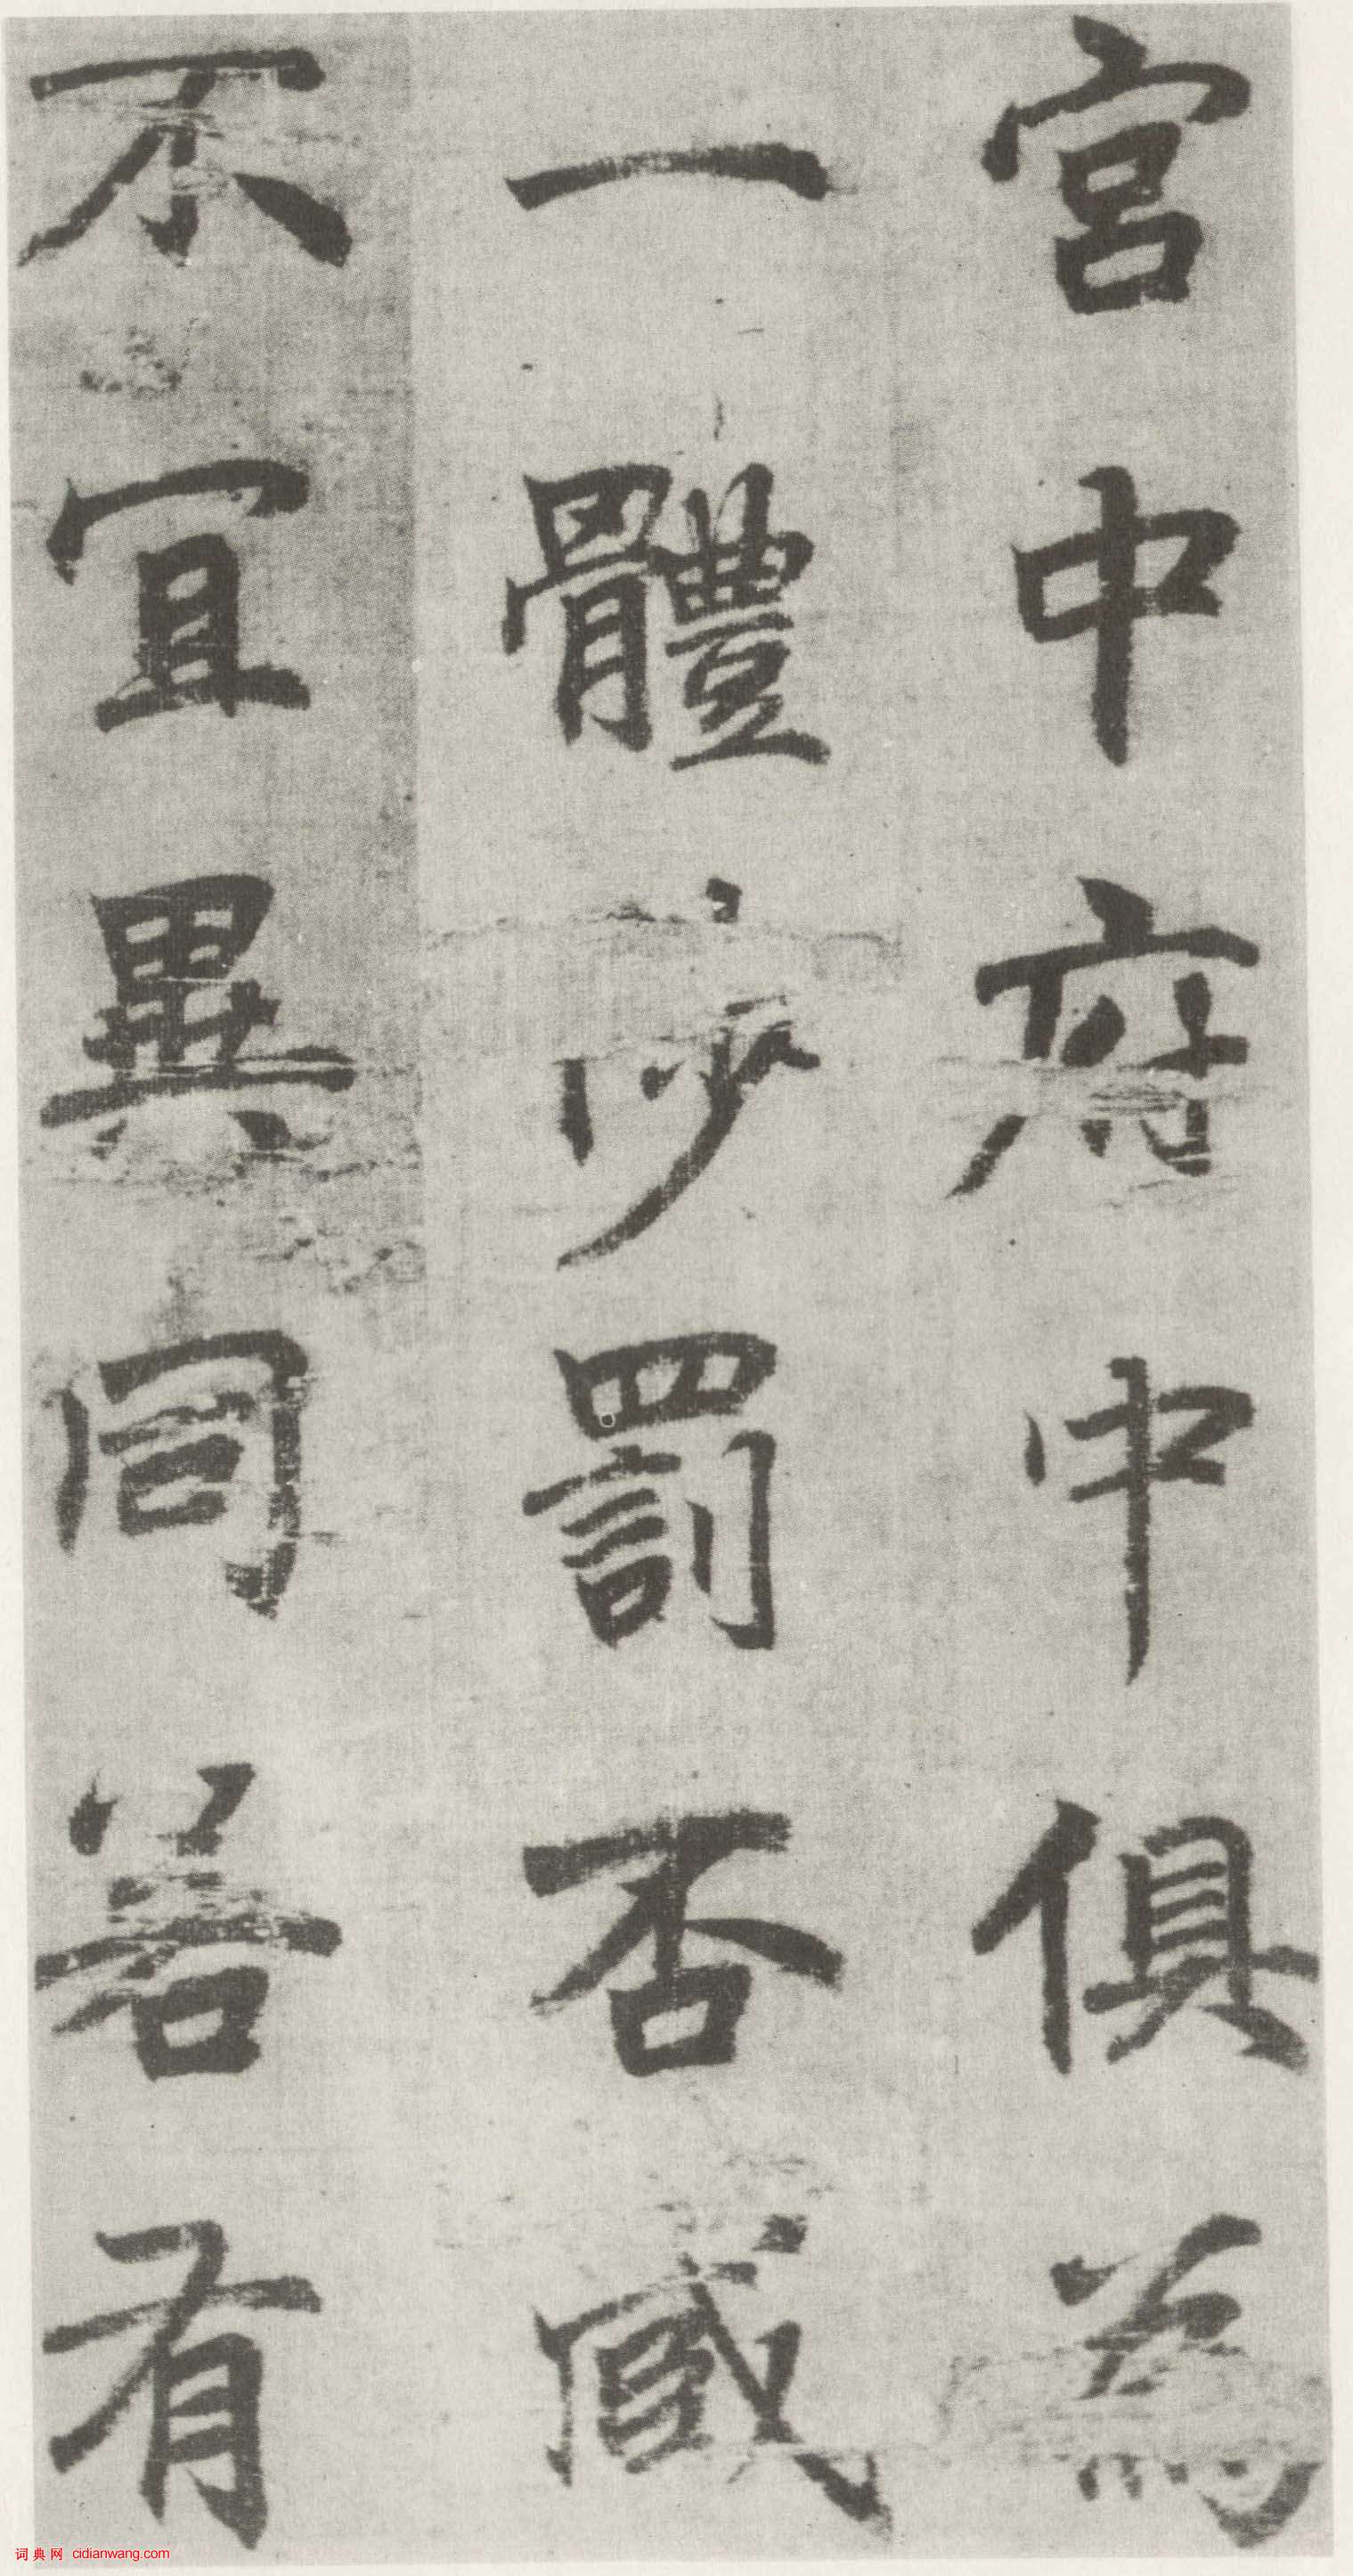 宮中府中俱為
一體陟罰否臧
不宜異同若有
词典网 cidianwang.com